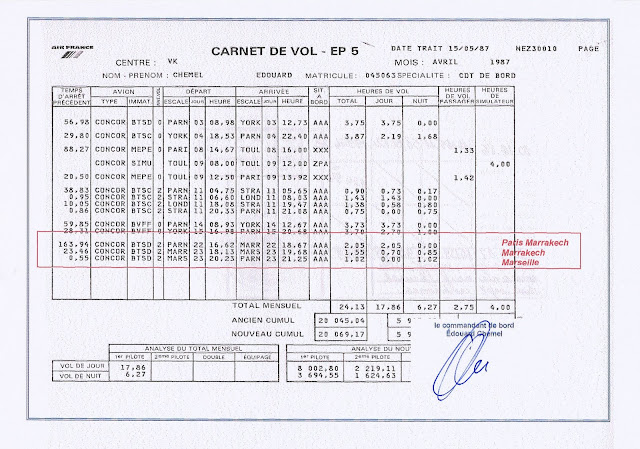 AIR FRANCE
CARNET DE VOL - EP 5 DATE TRAIT 15/05/87 NEZ30010 PAGE
CENTRE : VK MOIS : AVRIL 1987
NOM - PRENOM : CHEMEL EDOUARD MATRICULE : 045063 SPECIALITE : CDT DE BORD
TEMPS D'ARRÊT PRÉCÉDENT AVION DÉPART ARRIVÉE SIT A BORD HEURES DE VOL HEURES DE VOL PASSAGER HEURES DE SIMULATEUR
TYPE IMMAT. ESCALE JOUR HEURE ESCALE JOUR HEURE TOTAL JOUR NUIT
56,98 CONCOR BTSD 0 PARN 03 08,98 YORK 03 12,73 AAA 3,75 3,75 0,00
29,80 CONCOR BTSD 0 YORK 04 18,53 PARN 04 22,40 AAA 3,87 2,19 1,68
88,27 CONCOR MEPE 0 PARI 08 14,67 TOUL 08 16,00 XXX 1,33
CONCOR SIMU TOUL 09 08,00 TOUL 09 12,00 ZPA 4,00
20,50 CONCOR MEPE 0 TOUL 09 12,50 PARI 09 13,92 XXX 1,42
38,83 CONCOR BTSC 2 PARN 11 04,75 STRA 11 05,65 AAA 0,90 0,73 0,17
0,95 CONCOR BTSC 2 STRA 11 06,60 LOND 11 08,03 AAA 1,43 1,43 0,00
10,05 CONCOR BTSC 2 LOND 11 18,08 STRA 11 19,47 AAA 1,38 0,58 0,80
0,86 CONCOR BTSC 2 STRA 11 20,33 PARN 11 21,08 AAA 0,75 0,00 0,75
59,85 CONCOR BVFF 0 PARN 14 08,93 YORK 14 12,67 AAA 3,73 3,73 0,00
28,31 CONCOR BVFF 0 YORK 15 16,98 PARN 15 20,68 AAA 3,70 2,70 1,00
163,94 CONCOR BTSD 2 PARN 22 16,62 MARR 22 18,67 AAA 2,05 2,05 0,00 Paris Marrakech
23,46 CONCOR BTSD 2 MARR 23 18,13 MARS 23 19,68 AAA 1,55 0,70 0,85 Marrakech
0,55 CONCOR BTSD 2 MARS 23 20,23 PARN 23 21,25 AAA 1,02 0,00 1,02 Marseille
TOTAL MENSUEL 24,13 17,86 6,27 2,75 4,00
ANCIEN CUMUL 20 045,04 5 9
NOUVEAU CUMUL 20 069,17 5 9
le commandant de bord
Édouard Chemel
ANALYSE DU TOTAL MENSUEL ANALYSE DU NOU
1er PILOTE 2ème PILOTE DOUBLE ÉQUIPAGE 1er PILOTE 2ème PILOTE
VOL DE JOUR 17,86 8 002,80 2 219,11
VOL DE NUIT 6,27 3 694,55 1 624,63